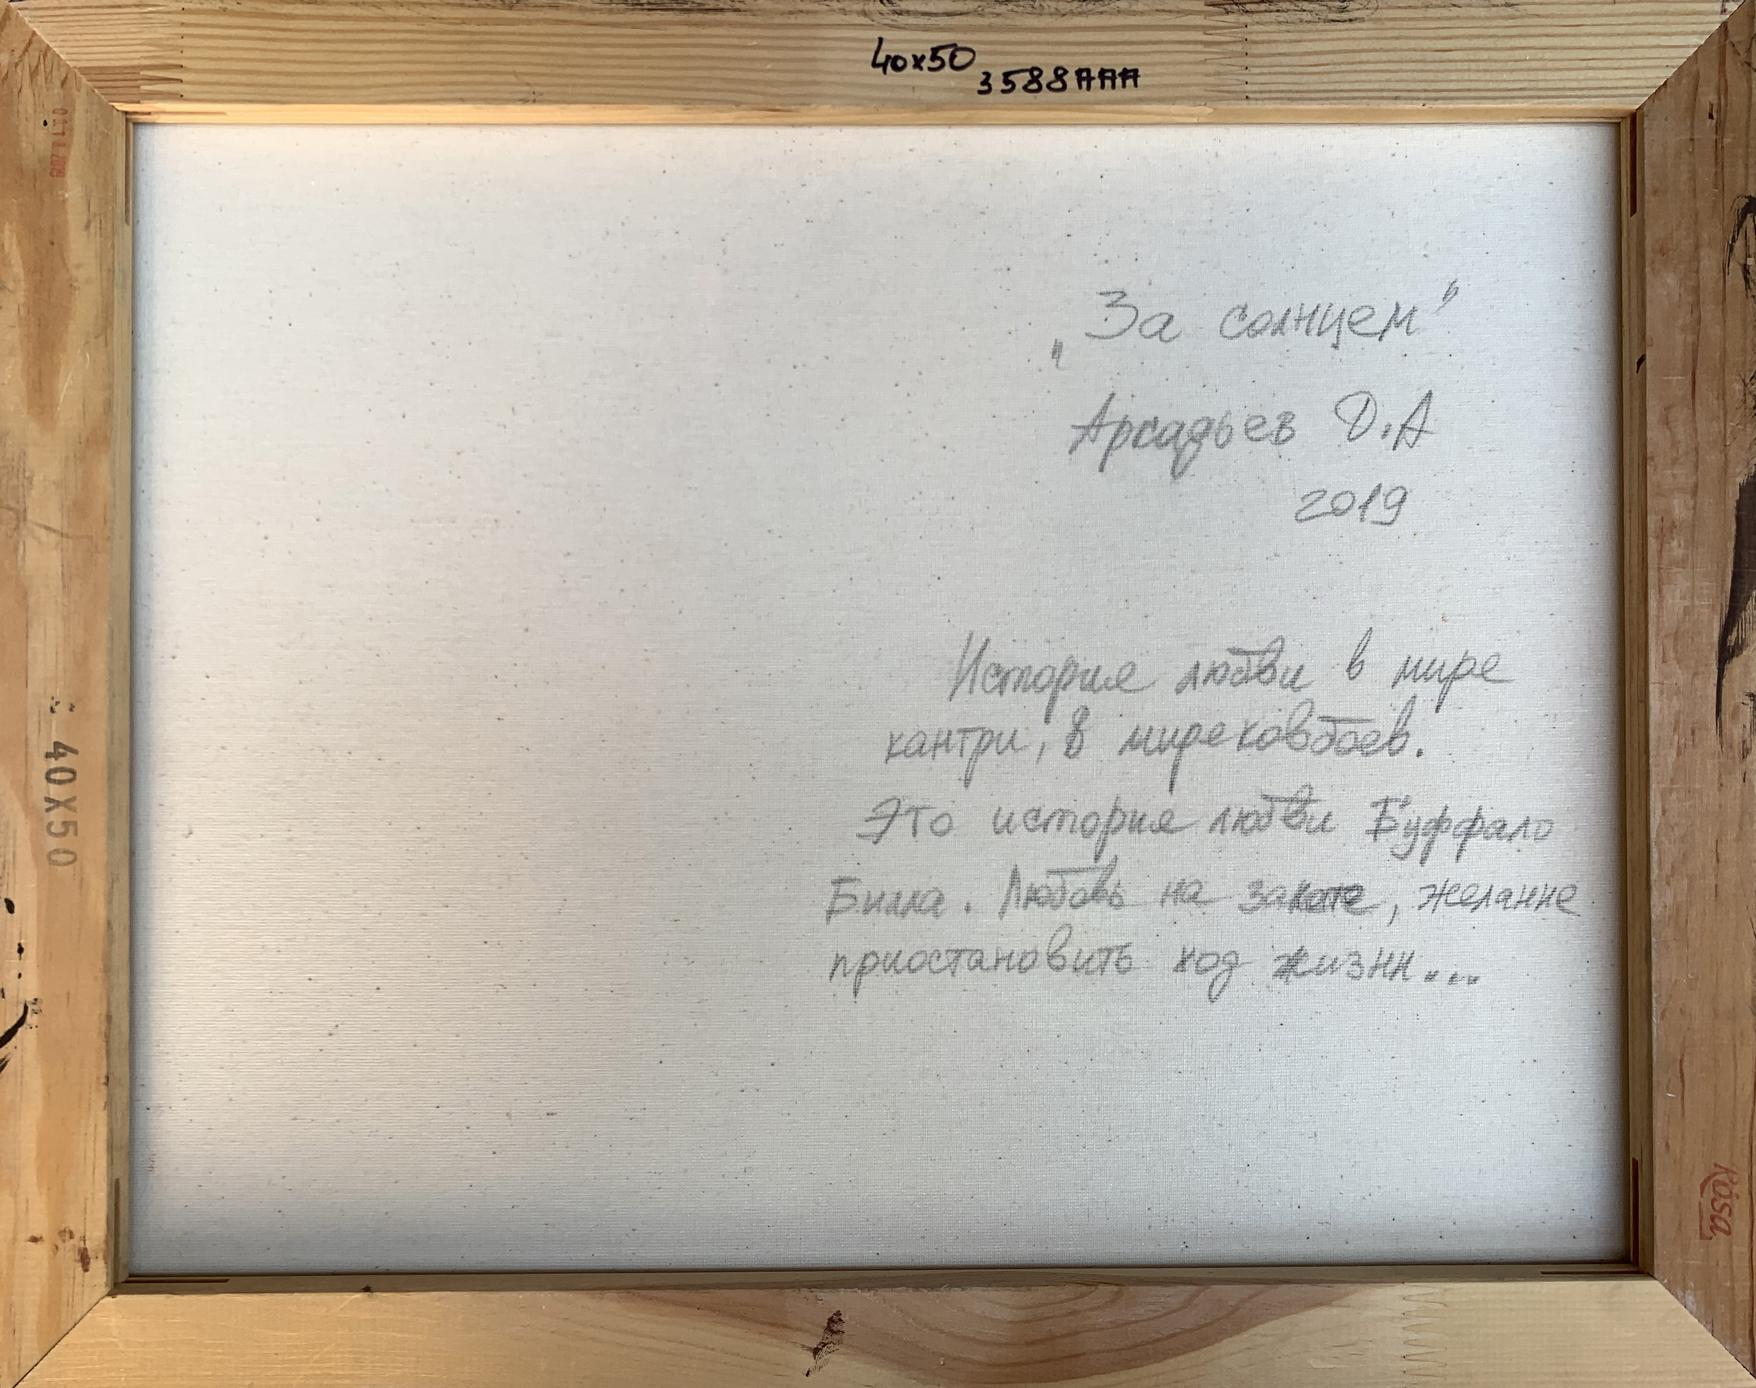 40x50
3588AAA
„За солнцем"
Аркадьев Д.А
2019
История любви в мире
кантри, в мире ковбоев.
Это история любви Буффало
Билла. Любовь на закате, желание
приостановить ход жизни...
40X50
Rosa